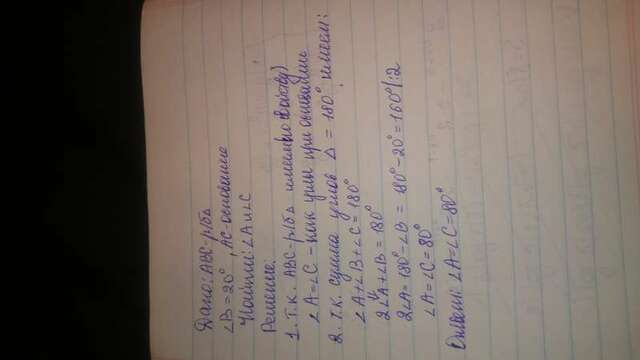 Дано: ABC - р/б Δ
∠B = 20°, AC - основание
Найти: ∠A и ∠C
Решение:
1. Т.к. ABC - р/б Δ имеем(по свойству)
∠A = ∠C - как углы при основании
2. Т.к. сумма углов Δ = 180° имеем:
∠A + ∠B + ∠C = 180°
2∠A + ∠B = 180°
2∠A = 180° - ∠B = 180° - 20° = 160° |:2
∠A = ∠C = 80°
Ответ: ∠A = ∠C = 80°